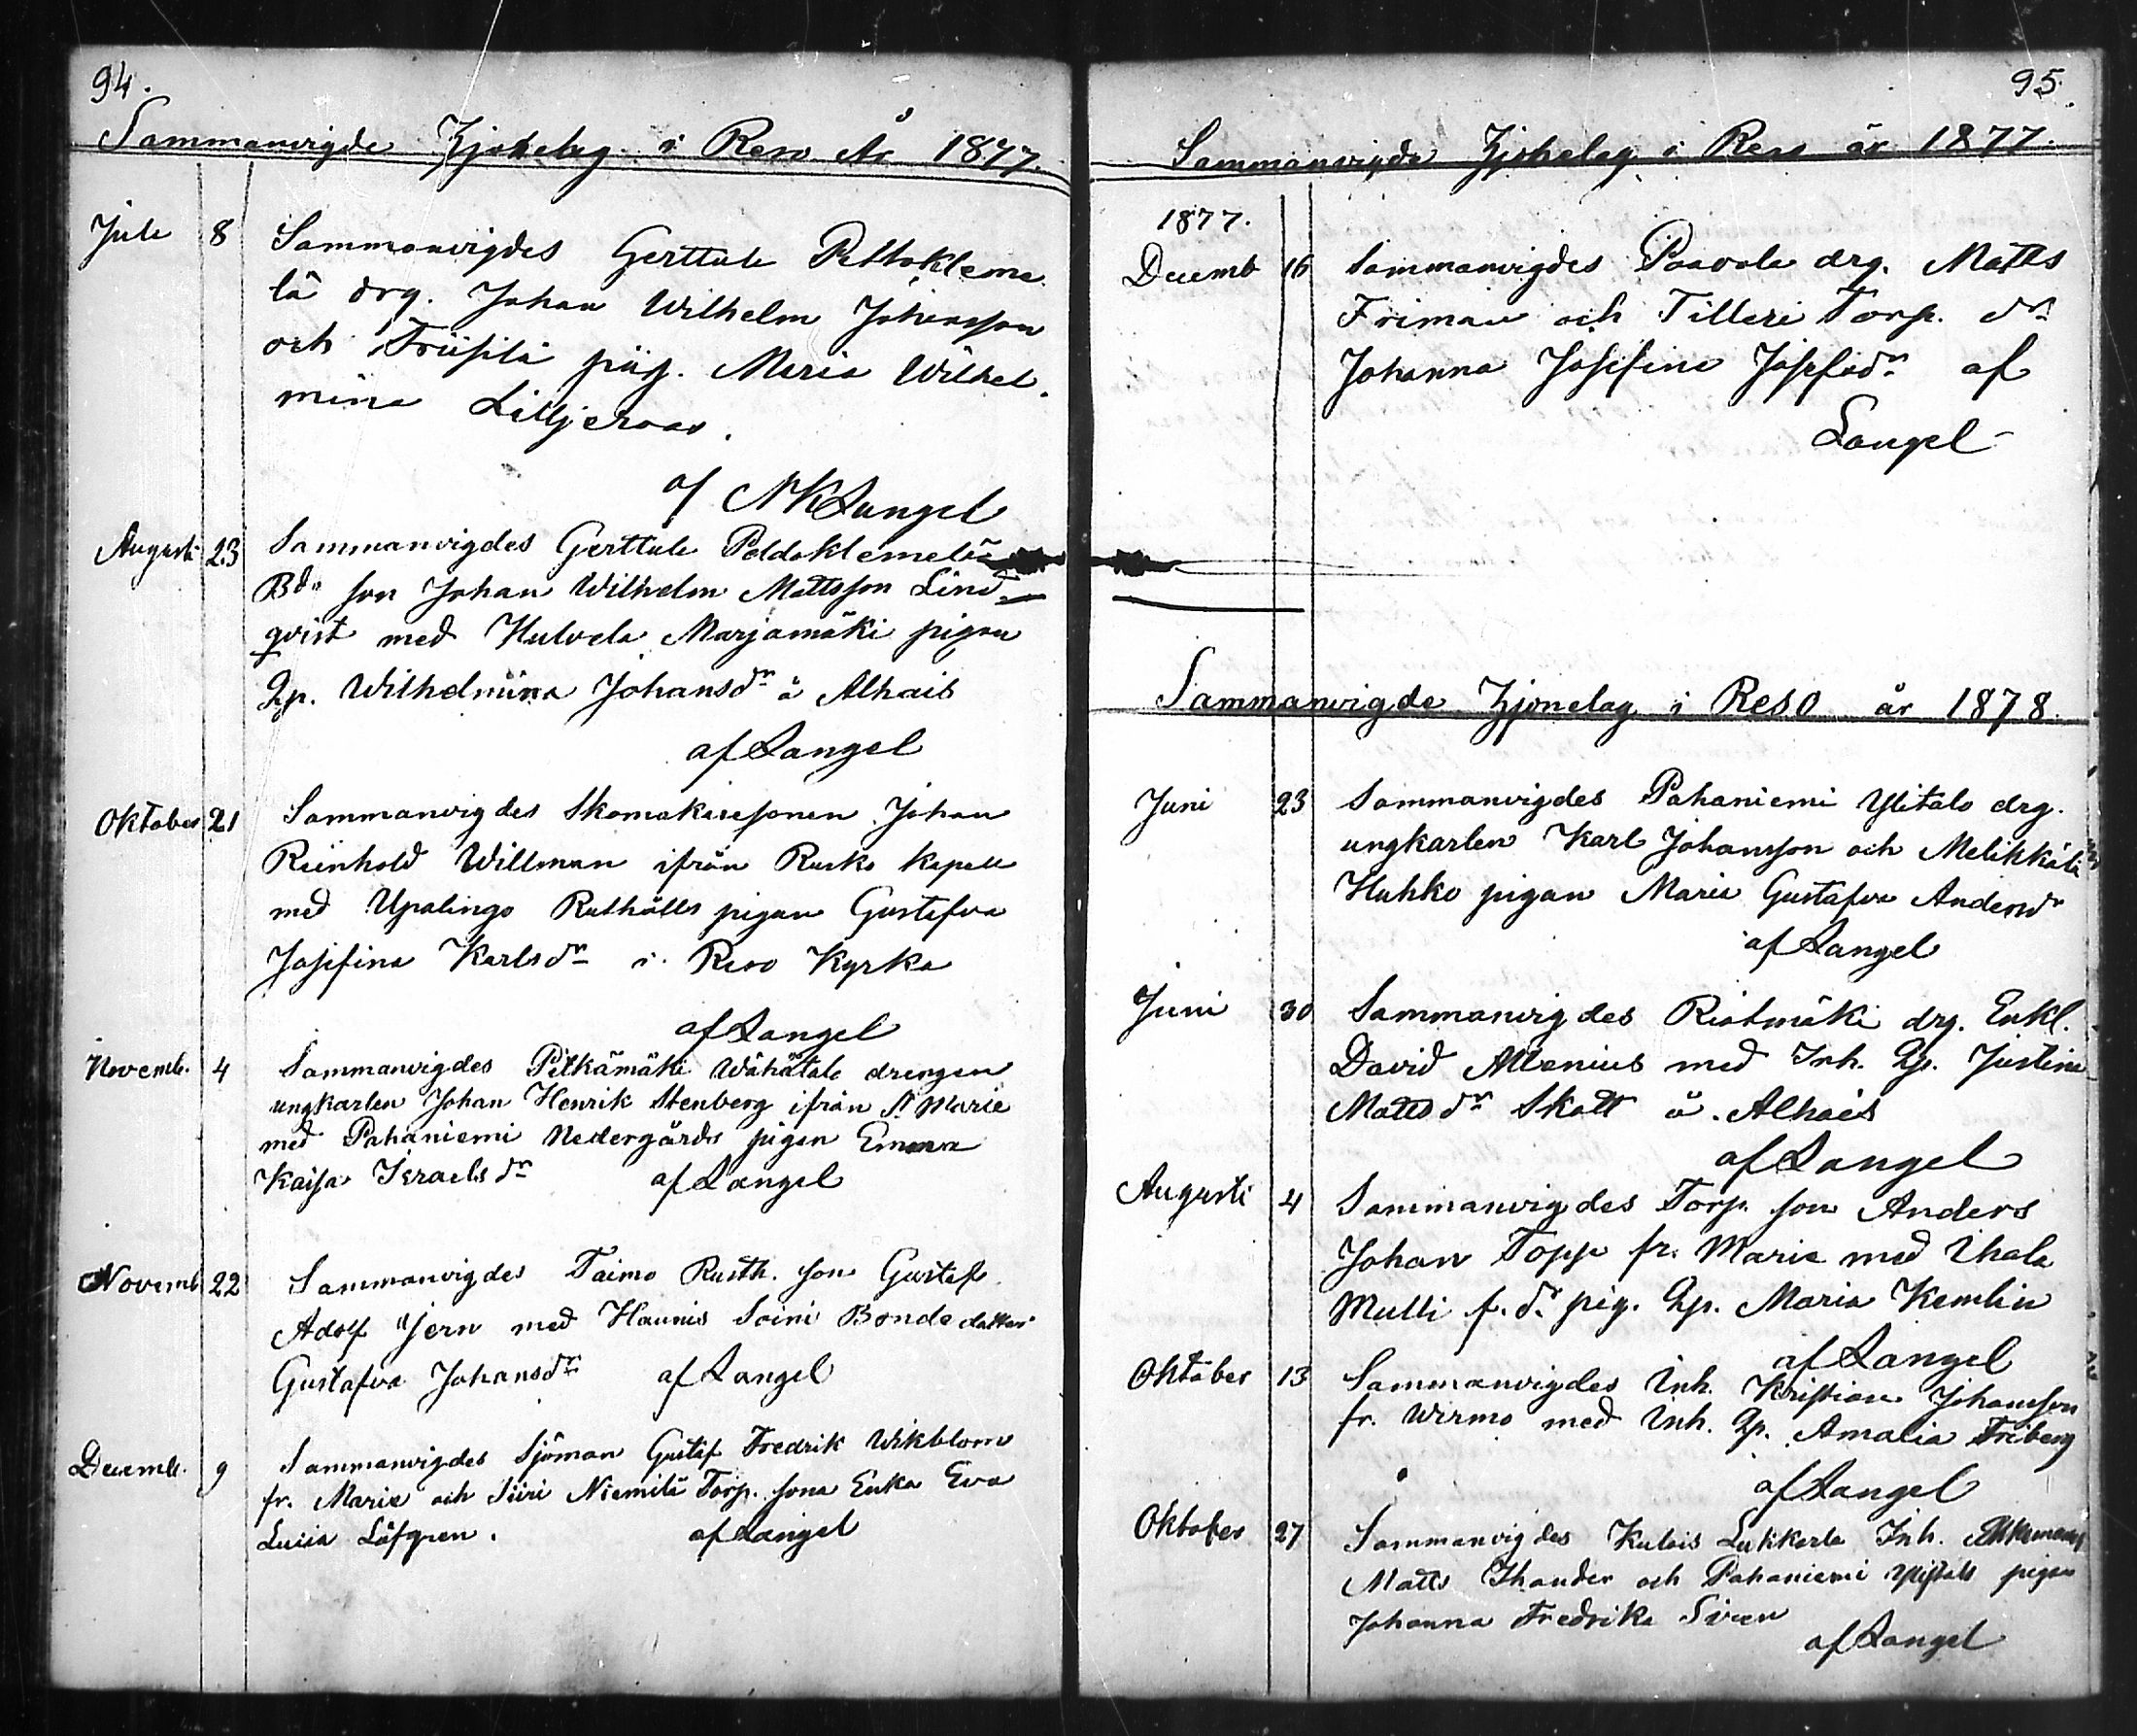 94.
Sammanvigde Hjonelag i Reso År 1877.
Juli 8 Sammanvigdes Gerttula Peltokleme
lä drg. Johan Wilhelm Johansson
och Friisilä pig. Maria Wilhel
mina Liljeroos.
af NKLangel
Augusti 23 Sammanvigdes Gerttula Poldoklemelä
Bde son Johan Wilhelm Mattsson Lind
qvist med Hulvela Marjamäki pigan
Qp. Wilhelmina Johansdr å Alhais
af Langel
Oktober 21 Sammanvigdes Skomakaresonen Johan
Reinhold Willman ifrån Rusko Kapell
med Upalingo Rusthålls pigan Gustafva
Josefina Karlsdr i Reso Kyrka
af Langel
Novemb. 4 Sammanvigdes Pitkämäki Wähätalo drengen
ungkarlen Johan Henrik Stenberg ifrån St Marie
med Pahaniemi Nedergårds pigan Emma
Kaisa Israelsdr af Langel
Novemb 22 Sammanvigdes Taimo Rusth. son Gustaf
Adolf Jern med Haunis Soini Bonde dotter
Gustafva Johansdr af Langel
Decemb. 9 Sammanvigdes Sjöman Gustaf Fredrik Wikblom
fr. Marie och Siiri Niemilä Torp. sons Enka Eva
Luisa Löfgren. af Langel
95.
Sammanvigde Hjonelag i Reso år 1877.
1877.
Decemb 16 Sammanvigdes Paavola drg. Matts
Friman och Tilleri Torp. dr
Johanna Josefina Josefsdr af
Langel
Sammanvigde Hjonelag i Reso år 1878.
Juni 23 Sammanvigdes Pahaniemi Ylitalo drg.
ungkarlen Karl Johansson och Melikkälä
Huhko pigan Maria Gustafva Andersdr
af Langel
Juni 30 Sammanvigdes Ristmäki drg. Enkl.
David Allenius med Inh. Qp. Justina
Mattsdr Skott å Alhais
af Langel
Augusti 4 Sammanvigdes Torp. son Anders
Johan Topp fr. Marie med Ihala
Mulli f. dr pig. Qp. Maria Kemlin
af Langel
Oktober 13 Sammanvigdes Inh. Kristian Johansson
fr. Wirmo med Inh. Qp. Amalia Friberg
af Langel
Oktober 27 Sammanvigdes Kulais Lukkarla Inh.
Matts Thander och Pahaniemi Ylistalo pigan
Johanna Fredrika Siren
af Langel